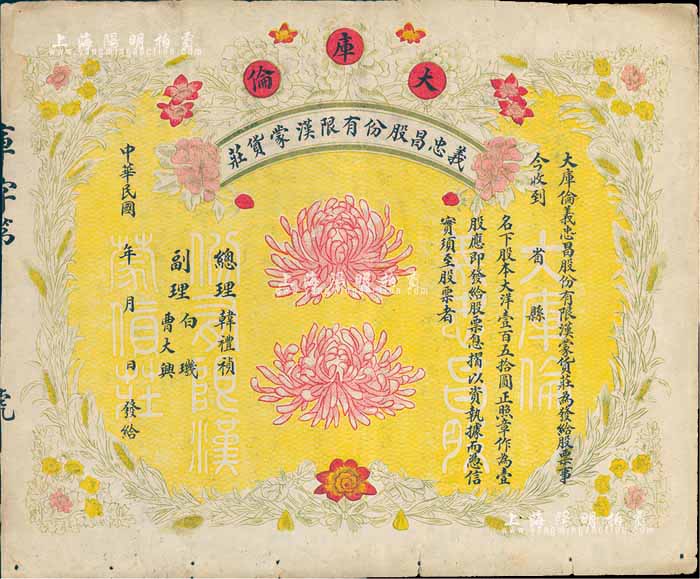 大庫倫
義忠昌股份有限漢蒙貨莊
大庫倫義忠昌股份有限漢蒙貨莊為發給股票事
今收到 省 縣
名下股本大洋壹百五拾圓正照章作為壹
股應即發給股票息摺以資執據而憑信
實須至股票者
總理 韓禮禎
副理 白璣
曹大興
中華民國 年 月 日 發給
庫字第 號
大庫倫
份有限漢
蒙貨莊
上海陽明拍賣
www.yangmingauction.com
上海陽明拍賣
上海陽明拍賣
www.yangmingauction.com